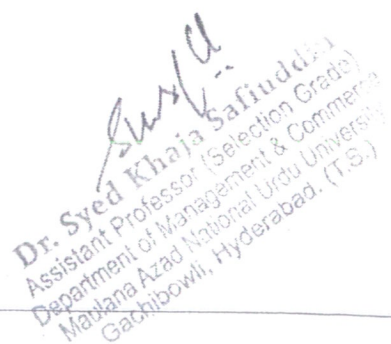 Dr. Syed Khaja Safiuddin
Assistant Professor (Selection Grade)
Department of Management & Commerce
Maulana Azad National Urdu University
Gachibowli, Hyderabad. (T.S.)